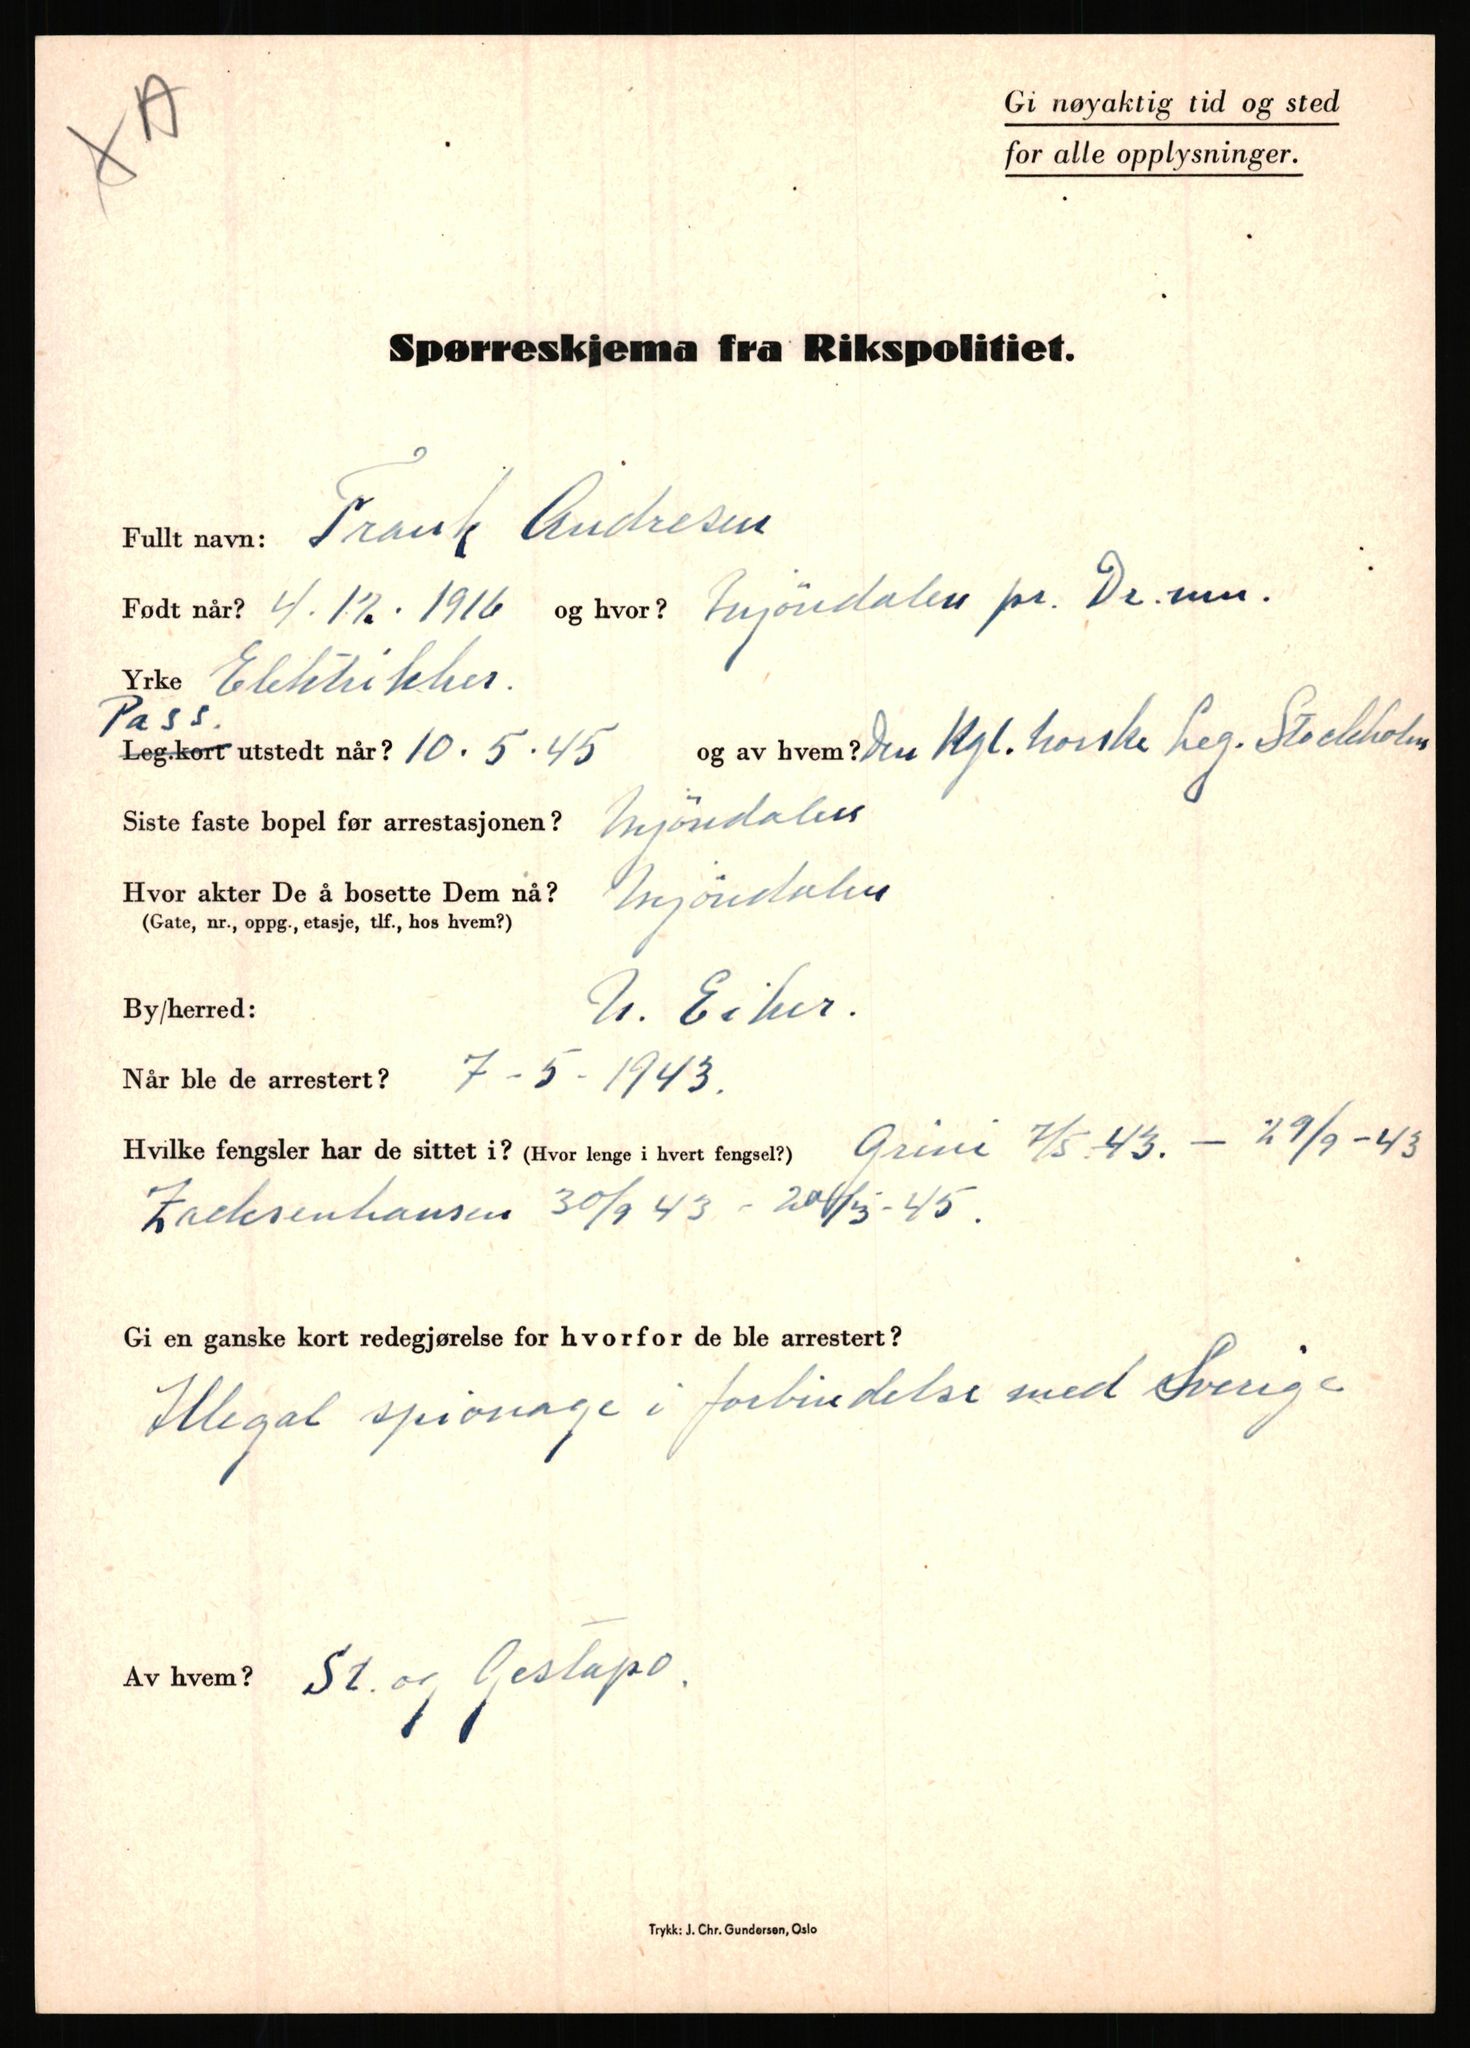 XA
Gi nøyaktig tid og sted
for alle opplysninger.
Spørreskjema fra Rikspolitiet.
Fullt navn: Frank Andresen
Født når? 4.12.1916 og hvor? Mjöndalen pr. Dr.mn.
Yrke Elektrikker.
Pass.
Leg.kort utstedt når? 10.5.45 og av hvem? Den Kgl. norske Leg. Stockholm
Siste faste bopel før arrestasjonen? Mjöndalen
Hvor akter De å bosette Dem nå? Mjöndalen
(Gate, nr., oppg., etasje, tlf., hos hvem?)
By/herred: N. Eiker.
Når ble de arrestert? 7-5-1943.
Hvilke fengsler har de sittet i? (Hvor lenge i hvert fengsel?) Grini 7/5 43. – 29/9-43
Zachsenhausen 30/9 43 - -45.
Gi en ganske kort redegjørelse for hvorfor de ble arrestert?
Illegal spionage i forbindelse med Sverige
Av hvem? St. og Gestapo.
Trykk: J. Chr. Gundersen, Oslo